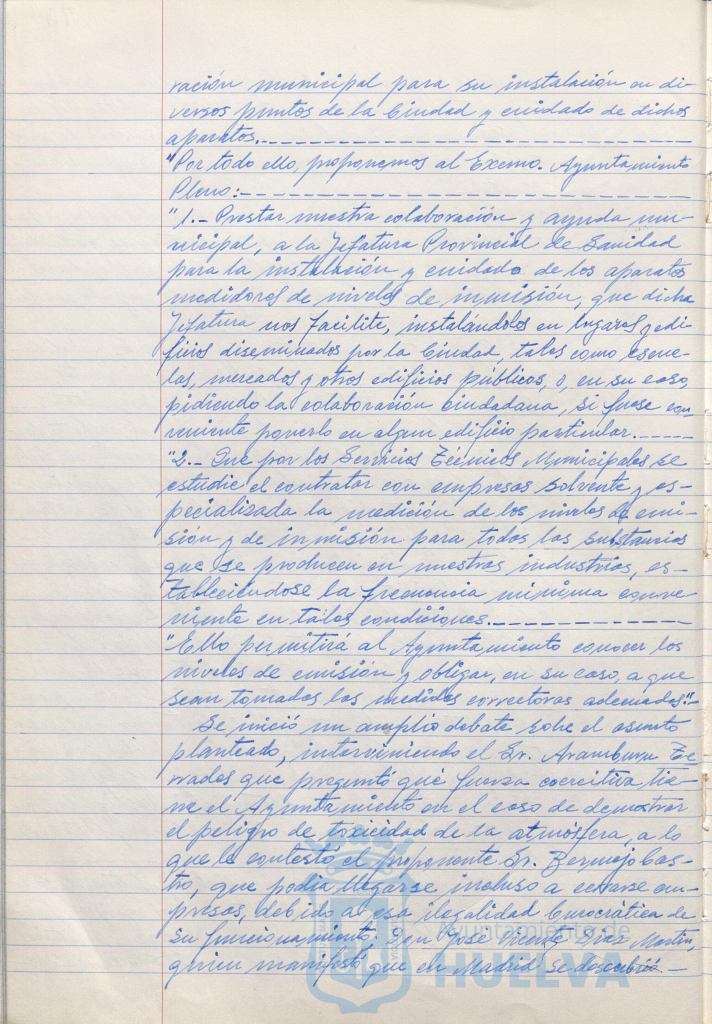 ración municipal para su instalación en di-
versos puntos de la Ciudad y cuidado de dichos
aparatos.
"Por todo ello, proponemos al Excmo. Ayuntamiento
Pleno:
"1.- Prestar nuestra colaboración y ayuda mu-
nicipal, a la Jefatura Provincial de Sanidad
para la instalación y cuidado de los aparatos
medidores de niveles de inmisión, que dicha
Jefatura nos facilite, instalándolos en lugares y edi-
ficios diseminados por la Ciudad, tales como escue-
las, mercados y otros edificios públicos, o, en su caso,
pidiendo la colaboración ciudadana, si fuese con-
veniente ponerlo en algun edificio particular.
"2.- Que por los Servicios Técnicos Municipales se
estudie el contratar con empresas solvente y es-
pecializada la medición de los niveles de emi-
sión y de inmisión para todas las substancias
que se producen en nuestras industrias, es-
tableciéndose la frecuencia mínima conve
niente en tales condiciones.
"Ello permitirá al Ayuntamiento conocer los
niveles de emisión y obligar, en su caso, a que
sean tomadas las medidas correctoras adecuadas."-
Se inició un amplio debate sobre el asunto
planteado, interviniendo el Sr. Aramburu Te
rrados que preguntó qué fuerza coercitiva tie-
ne el Ayuntamiento en el caso de demostrar
el peligro de toxicidad de la atmósfera, a lo
que le contestó el proponente Sr. Bermejo Cas-
tro, que podía llegarse incluso a cerrarse em-
presas, debido a esa ilegalidad burocrática de
su funcionamiento; Don José Vicente Díaz Martín,
quien manifestó que en Madrid se describió
Ayuntamiento de
HUELVA